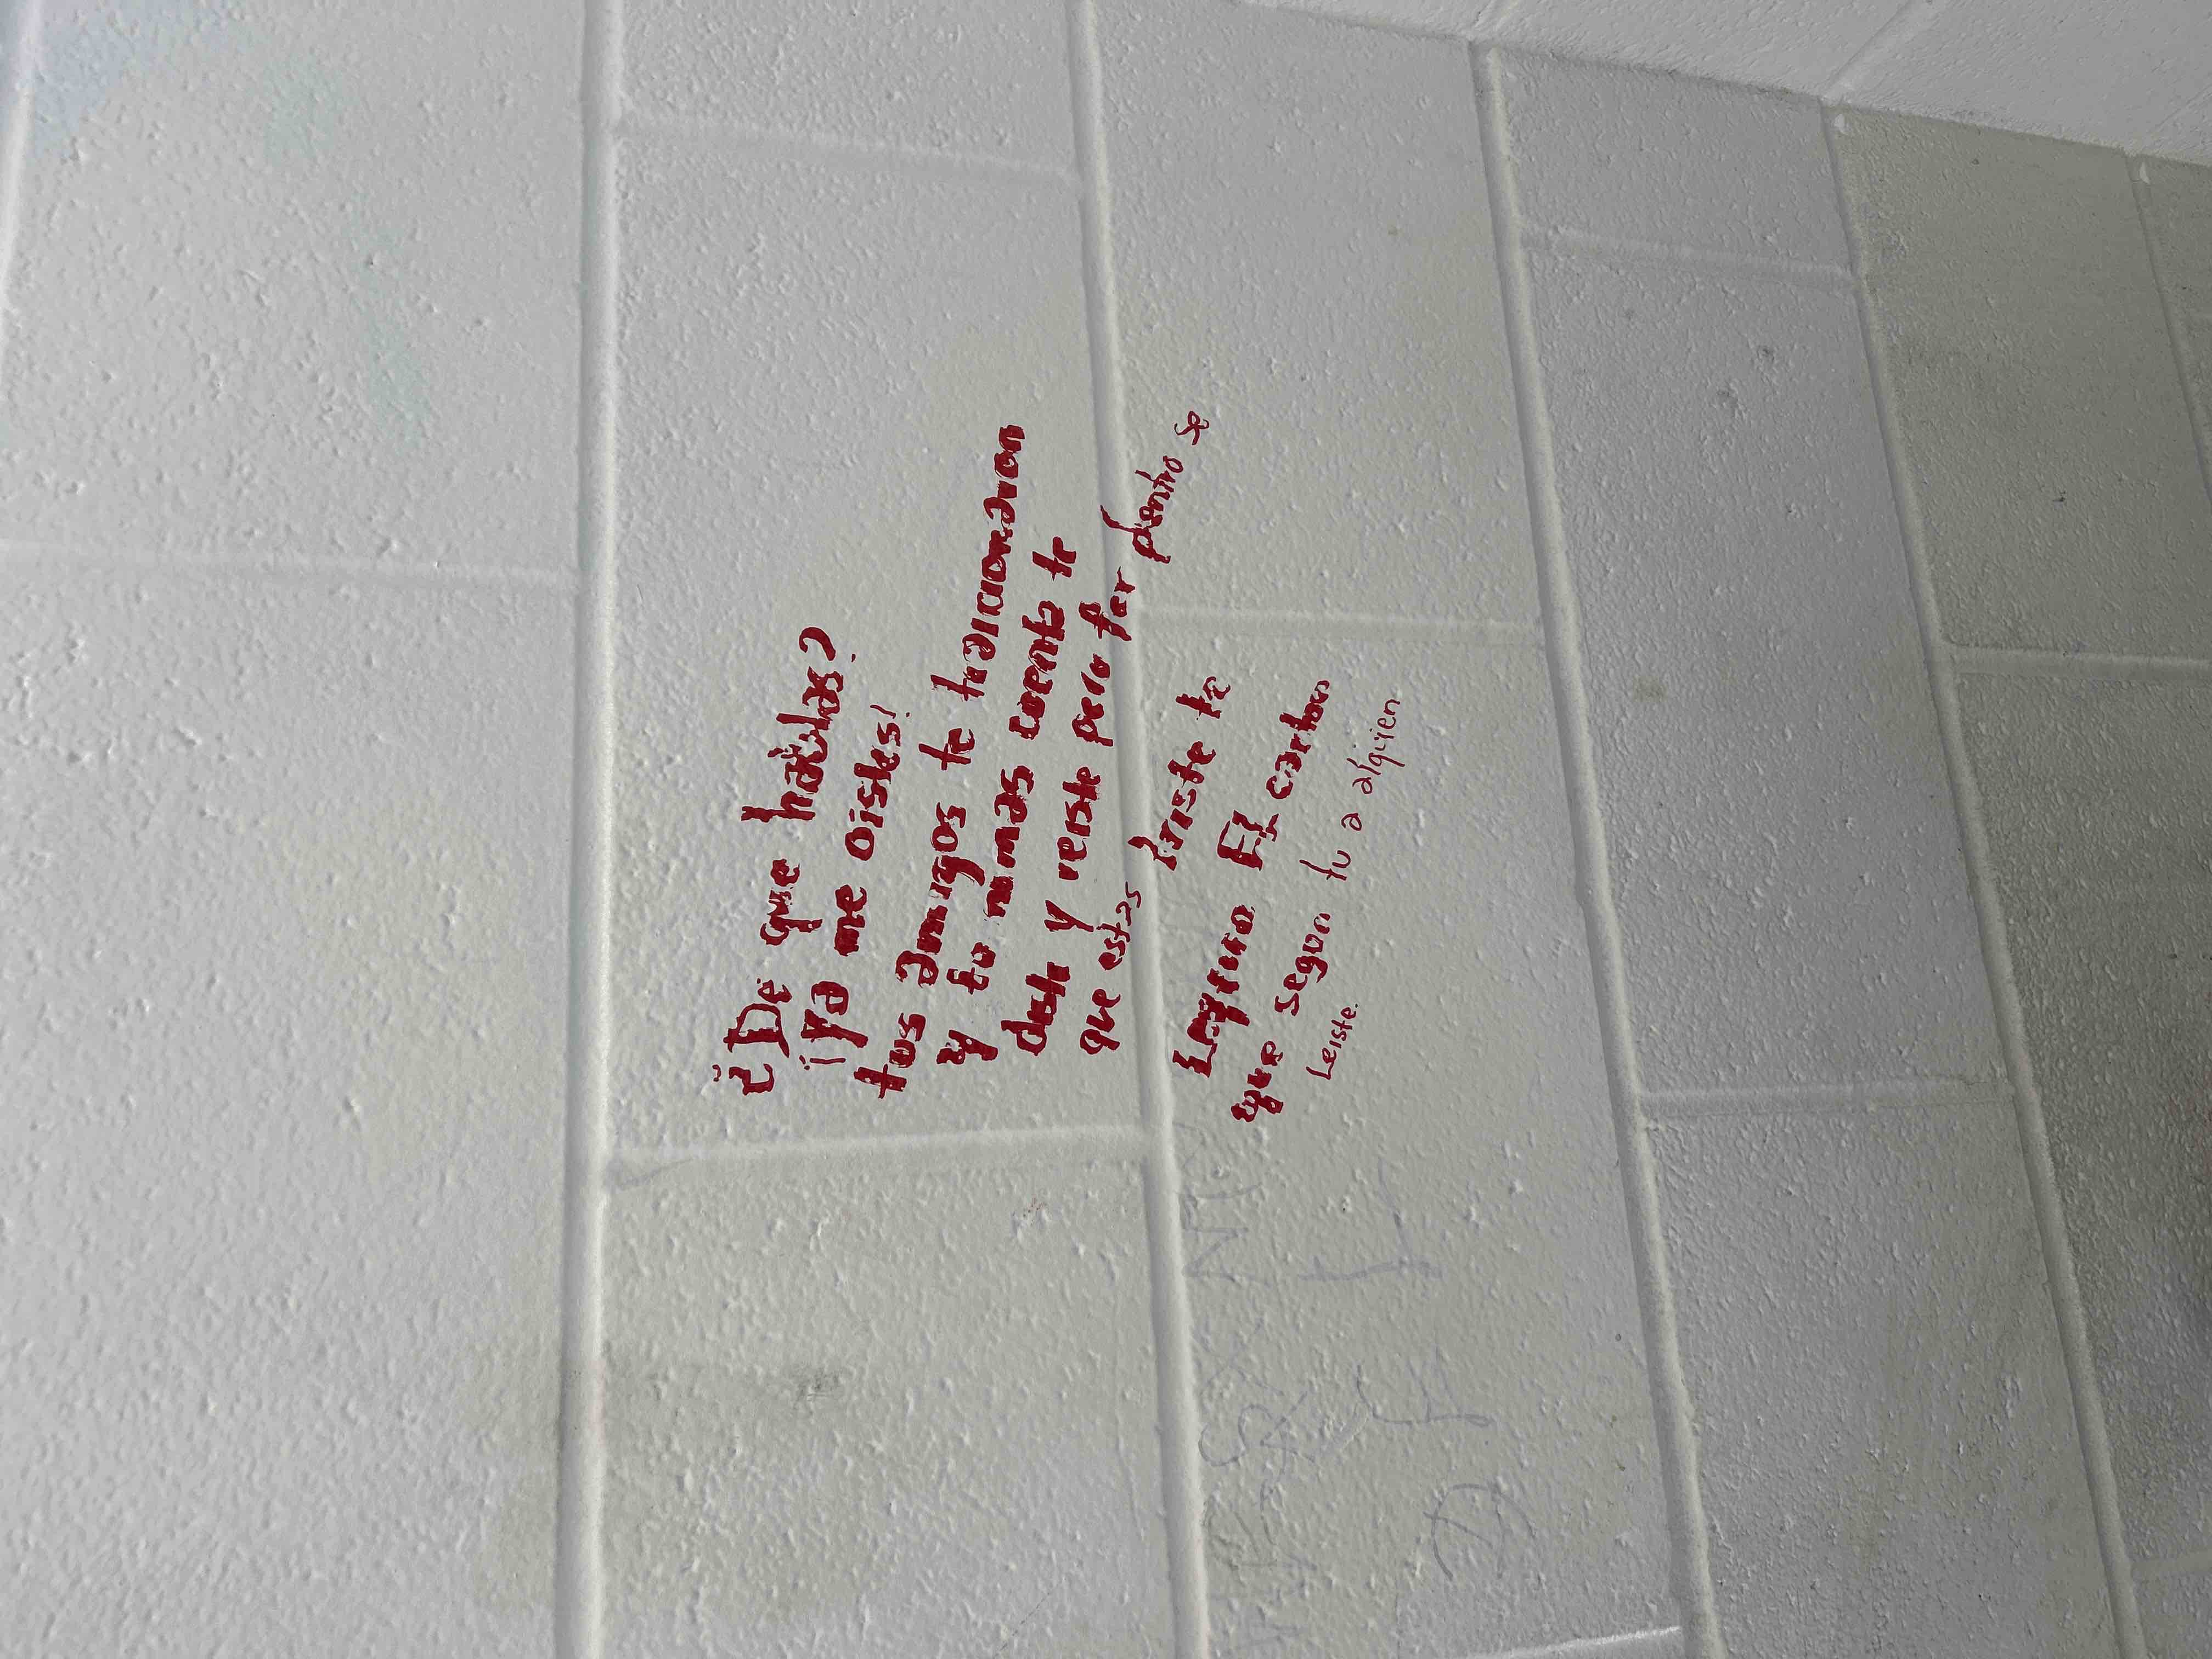 ¿De que hablas?
¡Ya me oistes!
tus amigos te traicionaron
y tu nmas cuenta te
diste y reiste pero por dentro se
que estas triste te
Lagrura El carbon
que segun tu a alguien
Leiste.